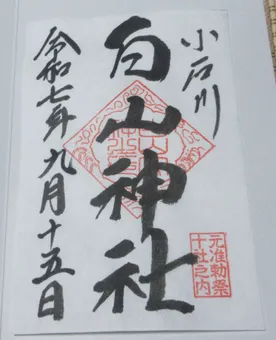 小石川
白山神社
令和七年九月十五日
元准勅祭
十社之内